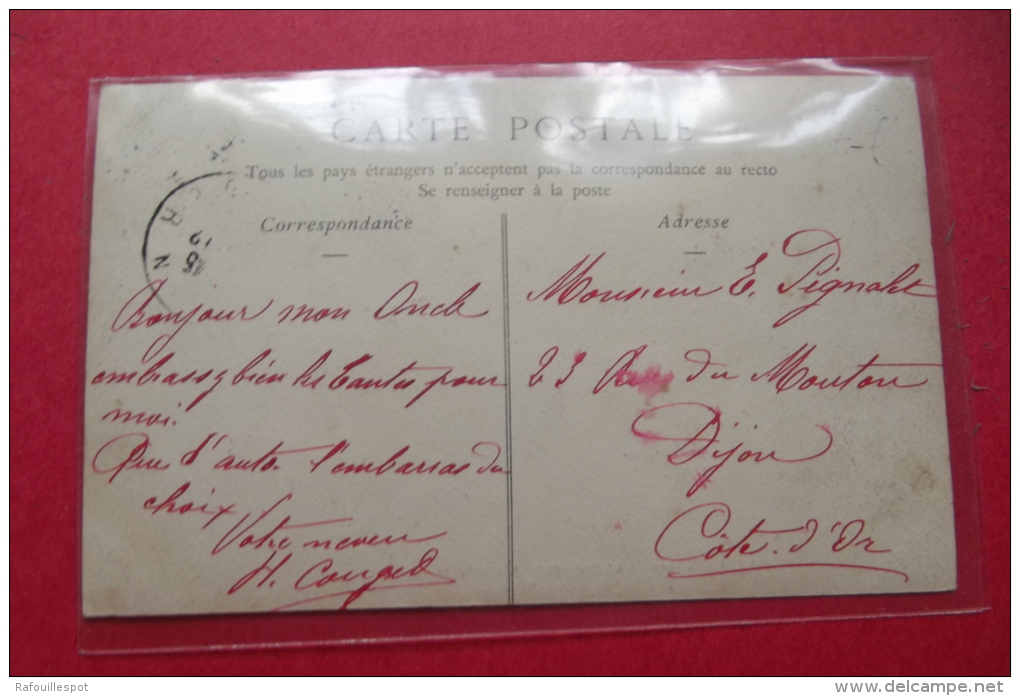 CARTE POSTALE
Tous les pays étrangers n'acceptent pas la correspondance au recto
Se renseigner à la poste
Correspondance
Bonjour mon Oncle
embrassez bien les tantes pour
moi.
Que d'auto. l'embarras du
choix
Votre neveu
H.
Adresse
Monsieur E.
23 Rue du Mouton
Dijon
Côte-d'Or
Rafouillespot
www.delcampe.net